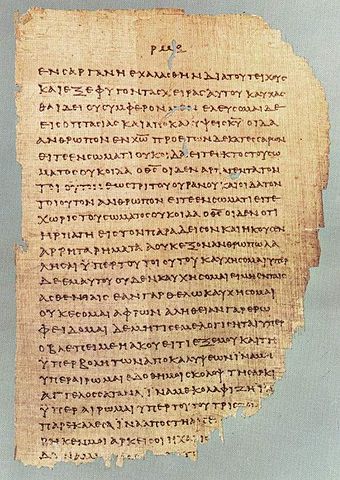 ΕΝϹΑΡΓΑΝΗΕΧΑΛΑϹΘΗΝΔΙΑΤΟΥΤΕΙΧΟΥϹ
ΚΑΙΕΞΕΦΥΓΟΝΤΑϹΧΕΙΡΑϹΑΥΤΟΥΚΑΥΧΑϹ
ΘΑΙΔΕΙΟΥϹΥΜΦΕΡΟΝΜΕΝΕΛΕΥϹΟΜΑΙΔΕ
ΕΙϹΟΠΤΑϹΙΑϹΚΑΙΑΠΟΚΑΛΥΨΕΙϹΚ̅Υ̅ΟΙΔΑ
ΑΝΘΡΩΠΟΝΕΝΧ̅Ω̅ΠΡΟΕΤΩΝΔΕΚΑΤΕϹϹΑΡΩΝ
ΕΙΤΕΕΝϹΩΜΑΤΙΟΥΚΟΙΔΑΕΙΤΕΕΚΤΟϹΤΟΥϹΩ
ΜΑΤΟϹΟΥΚΟΙΔΑΟΘ̅Ϲ̅ΟΙΔΕΝΑΡΠΑΓΕΝΤΑΤΟΝ
ΤΟΙΟΥΤΟΝΕΩϹΤΡΙΤΟΥΟΥΡΑΝΟΥΚΑΙΟΙΔΑΤΟΝ
ΤΟΙΟΥΤΟΝΑΝΘΡΩΠΟΝΕΙΤΕΕΝϹΩΜΑΤΙΕΙΤΕ
ΧΩΡΙϹΤΟΥϹΩΜΑΤΟϹΟΥΚΟΙΔΑΟΘ̅Ϲ̅ΟΙΔΕΝΟΤΙ
ΗΡΠΑΓΗΕΙϹΤΟΝΠΑΡΑΔΕΙϹΟΝΚΑΙΗΚΟΥϹΕΝ
ΑΡΡΗΤΑΡΗΜΑΤΑΑΟΥΚΕΞΟΝΑΝΘΡΩΠΩΛΑ
ΛΗϹΑΙΥΠΕΡΤΟΥΤΟΙΟΥΤΟΥΚΑΥΧΗϹΟΜΑΙΥΠΕΡ
ΔΕΕΜΑΥΤΟΥΟΥΔΕΝΚΑΥΧΗϹΟΜΑΙΕΙΜΗΕΝΤΑΙϹ
ΑϹΘΕΝΕΙΑΙϹΕΑΝΓΑΡΘΕΛΩΚΑΥΧΗϹΟΜΑΙ
ΟΥΚΕϹΟΜΑΙΑΦΡΩΝΑΛΗΘΕΙΑΝΓΑΡΕΡΩ
ΦΕΙΔΟΜΑΙΔΕΜΗΤΙϹΕΜΕΛΟΓΙϹΗΤΑΙΥΠΕΡ
ΟΒΛΕΠΕΙΜΕΗΑΚΟΥΕΙΤΙΕΞΕΜΟΥΚΑΙΤΗ
ΥΠΕΡΒΟΛΗΤΩΝΑΠΟΚΑΛΥΨΕΩΝΙΝΑΜΗ
ΥΠΕΡΑΙΡΩΜΑΙΕΔΟΘΗΜΟΙϹΚΟΛΟΨΤΗϹΑΡΚΙ
ΑΓΓΕΛΟϹϹΑΤΑΝΑΙΝΑΜΕΚΟΛΑΦΙΖΗ
ΥΠΕΡΑΙΡΩΜΑΙΥΠΕΡΤΟΥΤΟΥΤΡΙϹΤΟΝ
ΠΑΡΕΚΑΛΕϹΑΙΝΑΑΠΟϹΤΗ
ΡΗΚΕΝΜΟΙΑΡΚΕΙϹΟΙΗΧΑΡΙϹ